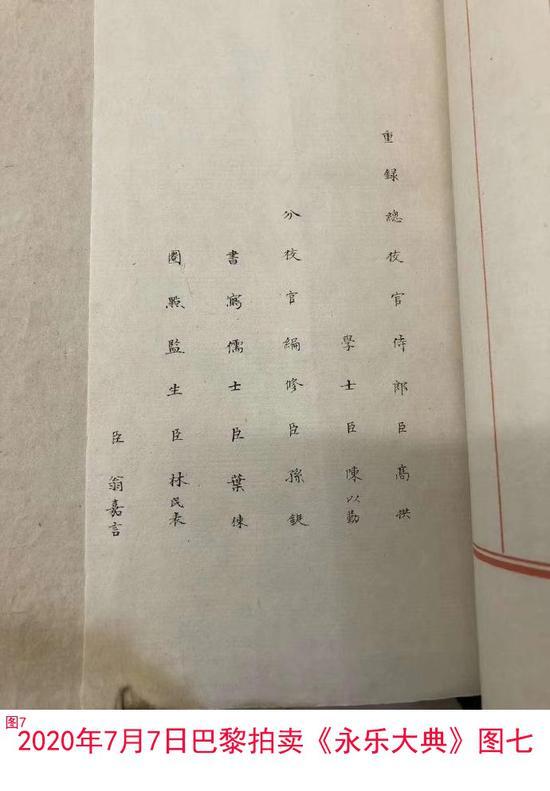 重録總校官侍郎臣高拱
學士臣陳以勤
分校官編修臣孫鋌
書寫儒士臣葉
圈點監生臣林民表
臣翁嘉言
图7
2020年7月7日巴黎拍卖《永乐大典》图七